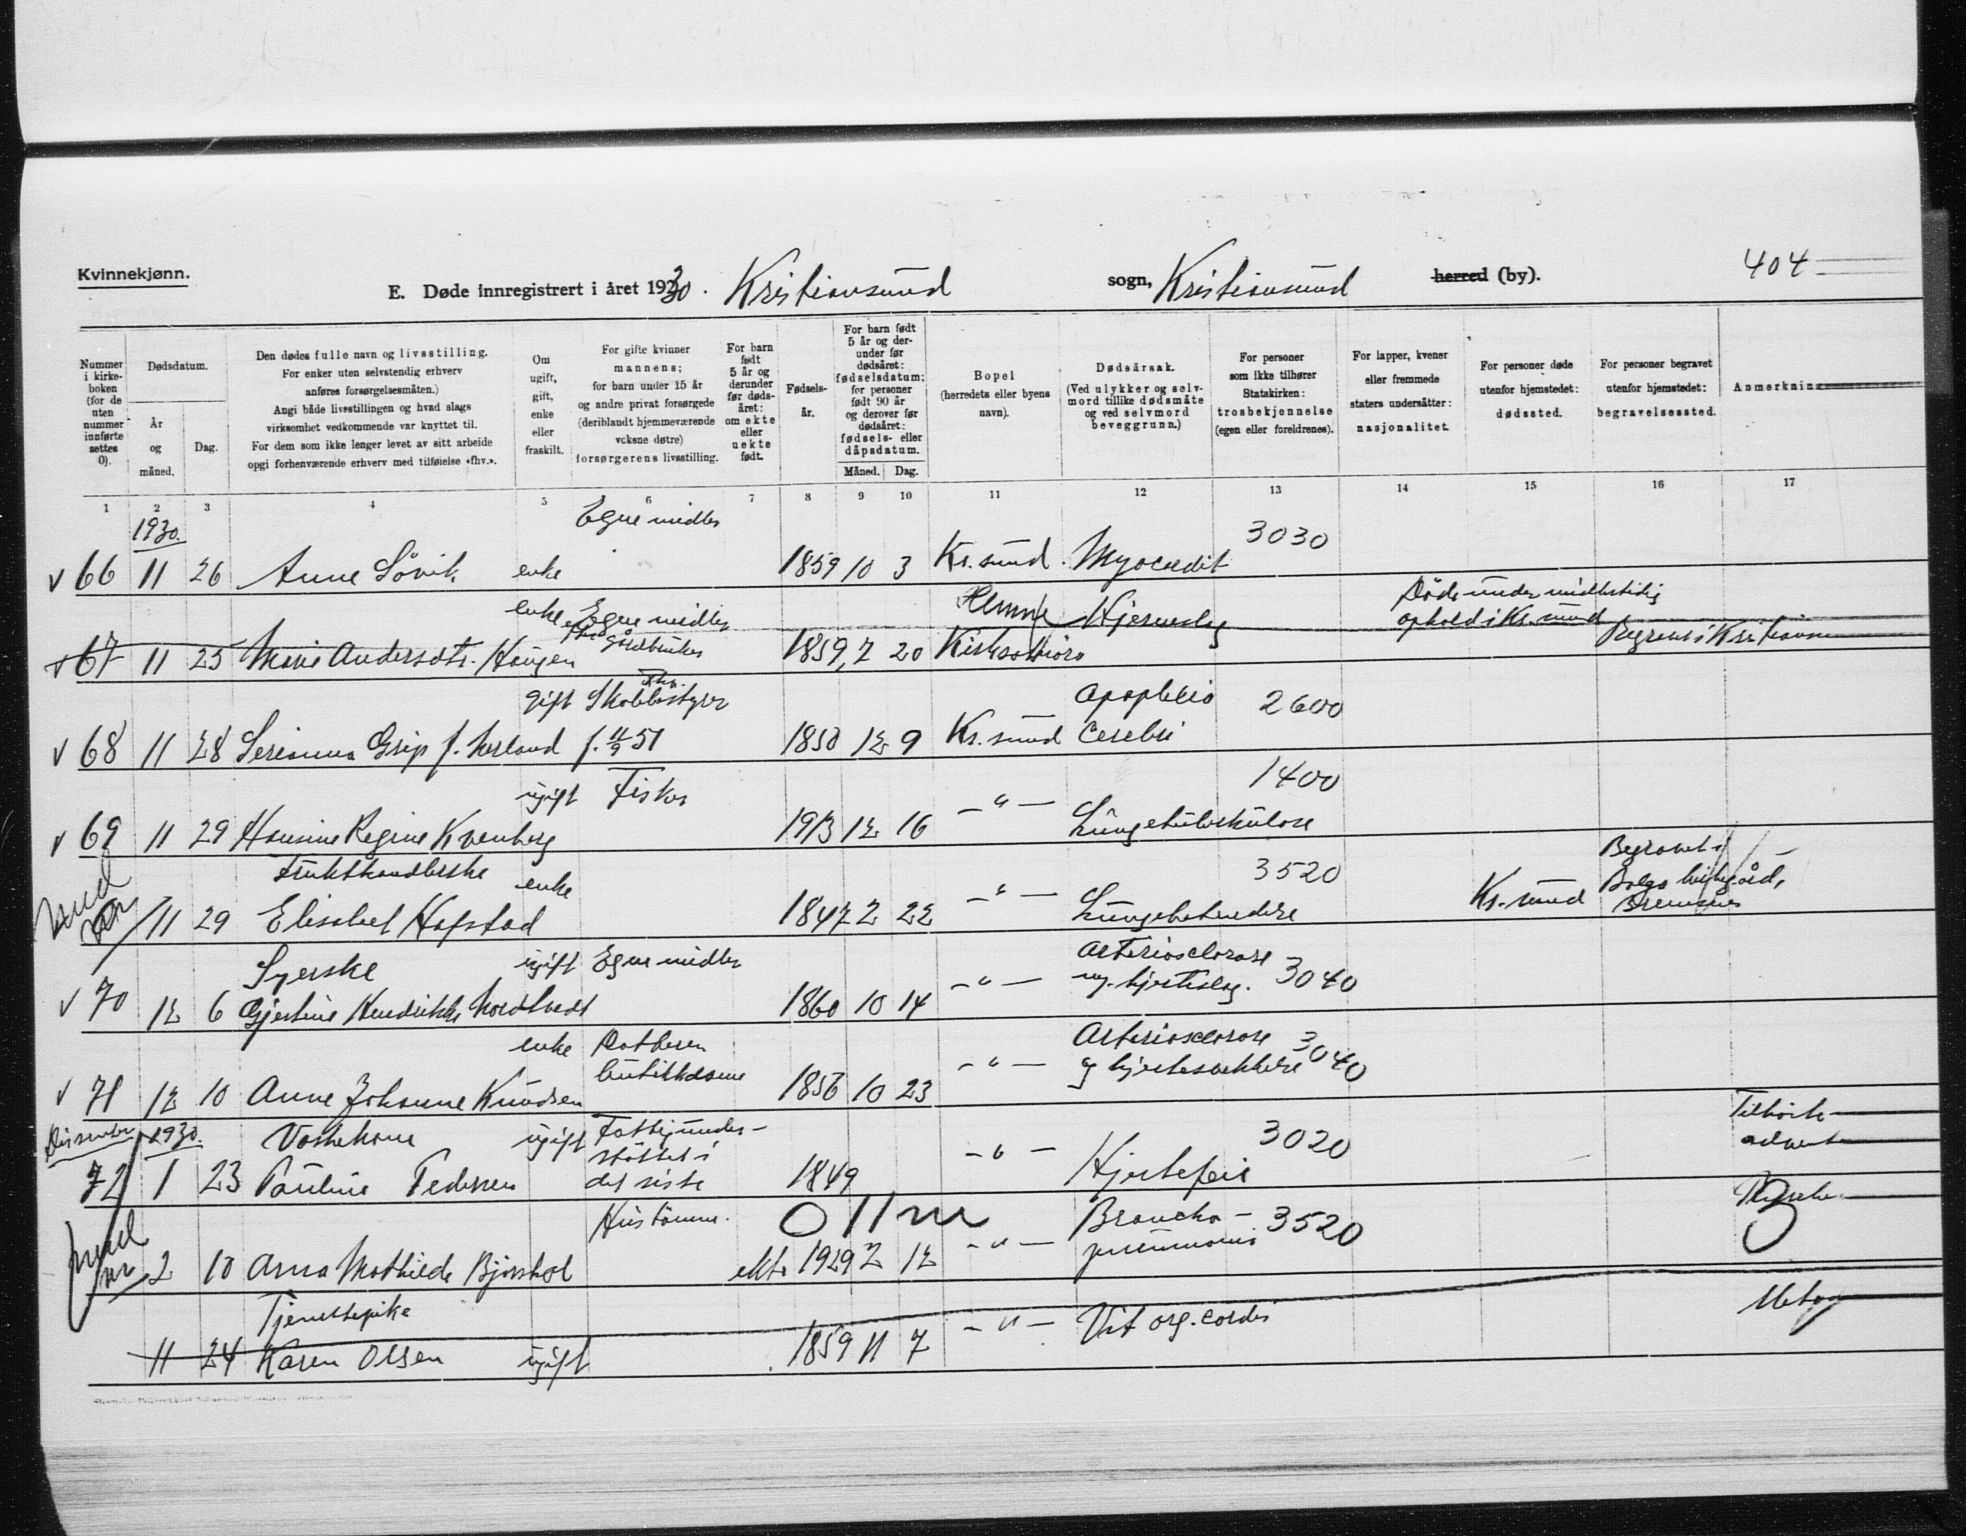 Kvinnekjønn.
404
E. Døde innregistrert i året 1930. Kristiansund sogn, Kristiansund herred (by).
Nummer i kirkeboken (for de uten nummer innførte settes 0).
Dødsdatum.
År og måned.
Dag.
Den dødes fulle navn og livsstilling.
For enker uten selvstendig erhverv anføres forsørgelsesmåten.)
Angi både livsstillingen og hvad slags virksomhet vedkommende var knyttet til.
For dem som ikke lenger levet av sitt arbeide opgi forhenværende erhverv med tilføielse «fhv.».
Om ugift, gift, enke eller fraskilt.
For gifte kvinner mannens; for barn under 15 år og andre privat forsørgede (deriblandt hjemmeværende voksne døtre) forsørgerens livsstilling.
For barn født 5 år og derunder før dødsåret: om ekte eller uekte født.
Fødselsår.
For barn født 5 år og derunder før dødsåret: fødselsdatum; for personer født 90 år og derover før dødsåret: fødsels- eller dåpsdatum.
Måned. Dag.
Bopel (herredets eller byens navn).
Dødsårsak. (Ved ulykker og selvmord tillike dødsmåte og ved selvmord beveggrunn.)
For personer som ikke tilhører Statskirken: trosbekjennelse (egen eller foreldrenes).
For lapper, kvener eller fremmede staters undersåtter: nasjonalitet.
For personer døde utenfor hjemstedet: dødssted.
For personer begravet utenfor hjemstedet: begravelsessted.
Anmerkning
1 2 3 4 5 6 7 8 9 10 11 12 13 14 15 16 17
1930. Egne midler 3030
v 66 11 26 Anne Løvik enke 1859 10 3 Kr.sund Myocardit
enke Egne midler Hemne Hjerneslag Døde under midlertidig
fhv. gårdbruker ophold i Kr.sund
v 67 11 25 Marie Andersdtr. Haugen 1859 7 20 Begravet i Kristiansun
gift fhv. Skobestyrer Apoplexia 2600
v 68 11 28 Serianna Grip f. f. 11/9 51 1850 12 9 Kr.sund Cerebri
ugift Fisker 1400
v 69 11 29 Hansine Regine Kvenberg 1913 12 16 — " — Lungetuberkulose
Frukthandlerske enke 3520 Begravet i
11 29 Elisabet Hofstad 1847 2 22 — " — Lungebetendelse Kr.sund Bolga kirkegård, Bremsnes
Syerske ugift Egne midler Arteriosclerose
v 70 12 6 Gjertine Hendrikke Nordtvedt 1860 10 14 — " — og hjerteslag. 3040
enke Datteren butikkdame Arteriosclerose 3040
v 71 12 10 Anne Johanne Knudsen 1856 10 23 — " — og hjertesvekkelse
Desember 1930. Vaskekone ugift Fattigunderstøttet i det siste 3020 Tilhørte advent
72 1 23 Pauline Pedersen 1849 — " — Hjertefeil
Hustømm. 0 11 m Broncho- 3520
2 10 Anna Mathilde Bjørshol ekte 1929 2 12 — " — pneumoni
Tjenestepike
11 24 Karen Olsen ugift 1859 11 7 — " — Vit. org. cordis